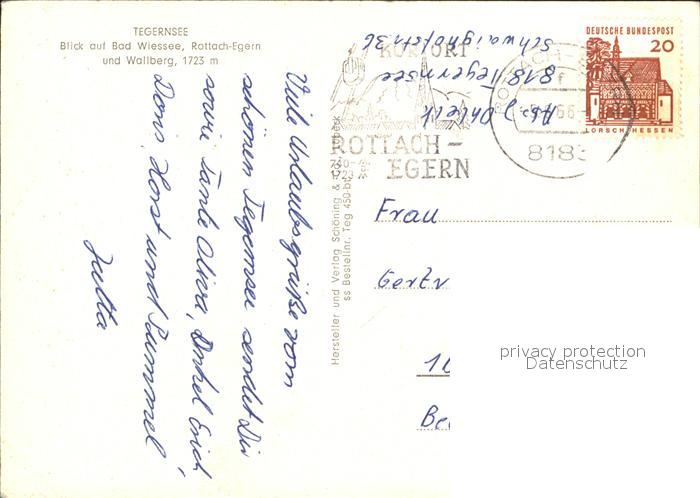 TEGERNSEE
Blick auf Bad Wiessee, Rottach-Egern
und Wallberg, 1723 m
Viele Urlaubsgrüße vom
schönen Tegernsee sendet Dir
sowie Tante Oliva, Onkel Erich
Doris, Horst und Pummel
Jutta
Hersteller und Verlag Schöning &
ss Bestellnr. Teg 450-b
Abs. J.
818 Tegernsee
Schwaighofstr. 36
KURORT
ROTTACH-
EGERN
730-
1723
ROTTACH-
66
8183
DEUTSCHE BUNDESPOST
20
LORSCH/HESSEN
Frau
Gertr
1
Be
privacy protection
Datenschutz